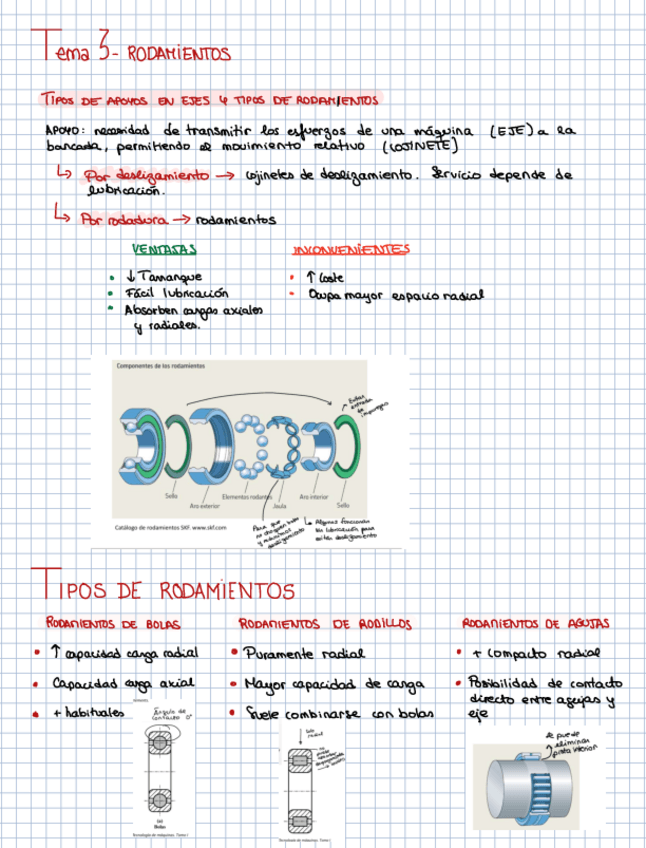 Tema 3- RODAMIENTOS
TIPOS DE APOYOS EN EJES Y TIPOS DE RODAMIENTOS
APOYO: necesidad de transmitir los esfuerzos de una máquina (EJE) a la
bancada, permitiendo el movimiento relativo (COJINETE)
↳ Por deslizamiento → cojinetes de deslizamiento. Servicio depende de
lubricación.
↳ Por rodadura → rodamientos
VENTAJAS
INCONVENIENTES
• ↓ Tamangue
• ↑ Coste
• Fácil lubricación
• Ocupa mayor espacio radial
• Absorben cargas axiales
y radiales.
Componentes de los rodamientos
Evitan entrada de impurezas
Sello
Aro exterior
Elementos rodantes
Jaula
Aro interior
Sello
Catálogo de rodamientos SKF. www.skf.com
Para que no choquen
deslizamiento
Algunos funcionan
sin lubricación para
evitar deslizamiento
TIPOS DE RODAMIENTOS
RODAMIENTOS DE BOLAS
RODAMIENTOS DE RODILLOS
RODAMIENTOS DE AGUJAS
• ↑ capacidad carga radial
• Puramente radial
• + compacto radial
• Capacidad carga axial
• Mayor capacidad de carga
• Posibilidad de contacto
directo entre agujas y
eje
• + habituales
• Suele combinarse con bolas
Ángulo de
contacto 0°
Solo
radial
Se puede
eliminar
pista interior
Bolas
Tecnología de máquinas. Tema I
Tecnología de máquinas. Tema I